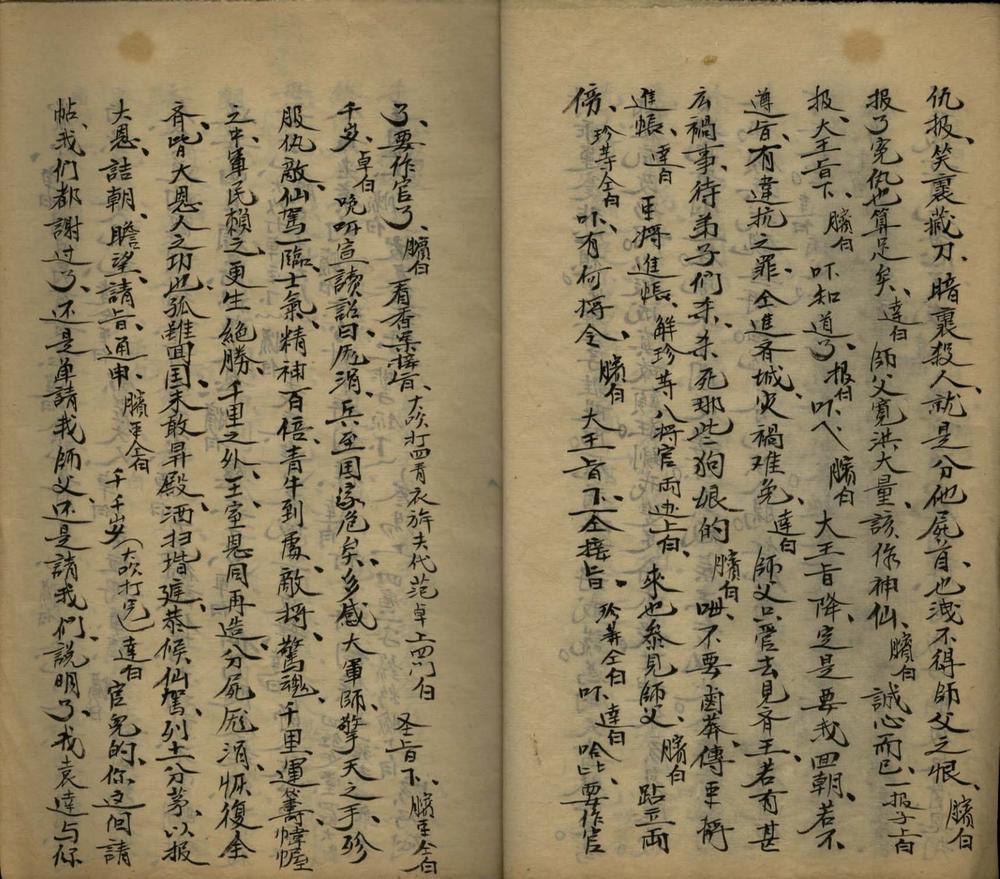 仇报、笑裏藏刀、暗裏殺人、就是分他屍首、也洩不得師父之恨、臏白
报了寃仇也算足矣、達白師父寬洪大量、該係神仙、臏白誠心而已、报子上白
报、大王旨下、臏白吓知道了、报白吓、臏白大王旨降、定是要我回朝、若不
遵旨、有違抗之罪、全進齐城、灾禍难免、達白師父只管去見齐王、若有甚
広禍事、待弟子們杀、杀死那些狗娘的、臏白唗、不要鹵莽、傳軍將
進帳、達白軍將進帳、解珍等八將官両边上白、來也、叅見師父、臏白跕立両
傍、珍等仝白吓、有何將令、臏白大王旨下、仝接旨、珍等仝白吓、達白哈、要作官
了、要作官了、臏白看香案接旨、大吹打四青衣旂夫代范卓上四门白圣旨下、臏軍仝白
千岁、卓白晚听宣讀、詔曰、庞涓兵至、国家危矣、多感大軍師、擎天之手、殄
服仇敵、仙駕一臨、士氣精神百倍、青牛到處、敵將驚魂、千里運籌帷幄
之中、軍民賴之更生、絶勝千里之外、王室恩同再造、分屍庞涓、恢復全
齐、皆大恩人之功也、孤雖回国、未敢昇殿、洒扫堦墀、恭候仙駕、列土分茅、以报
大恩、詰朝瞻望、請旨通申、臏軍仝白千千岁、（大吹打完）達白官兒的、你这回請
帖、我們都謝过了、还是单請我師父、还是請我們、說明了、我袁達与你